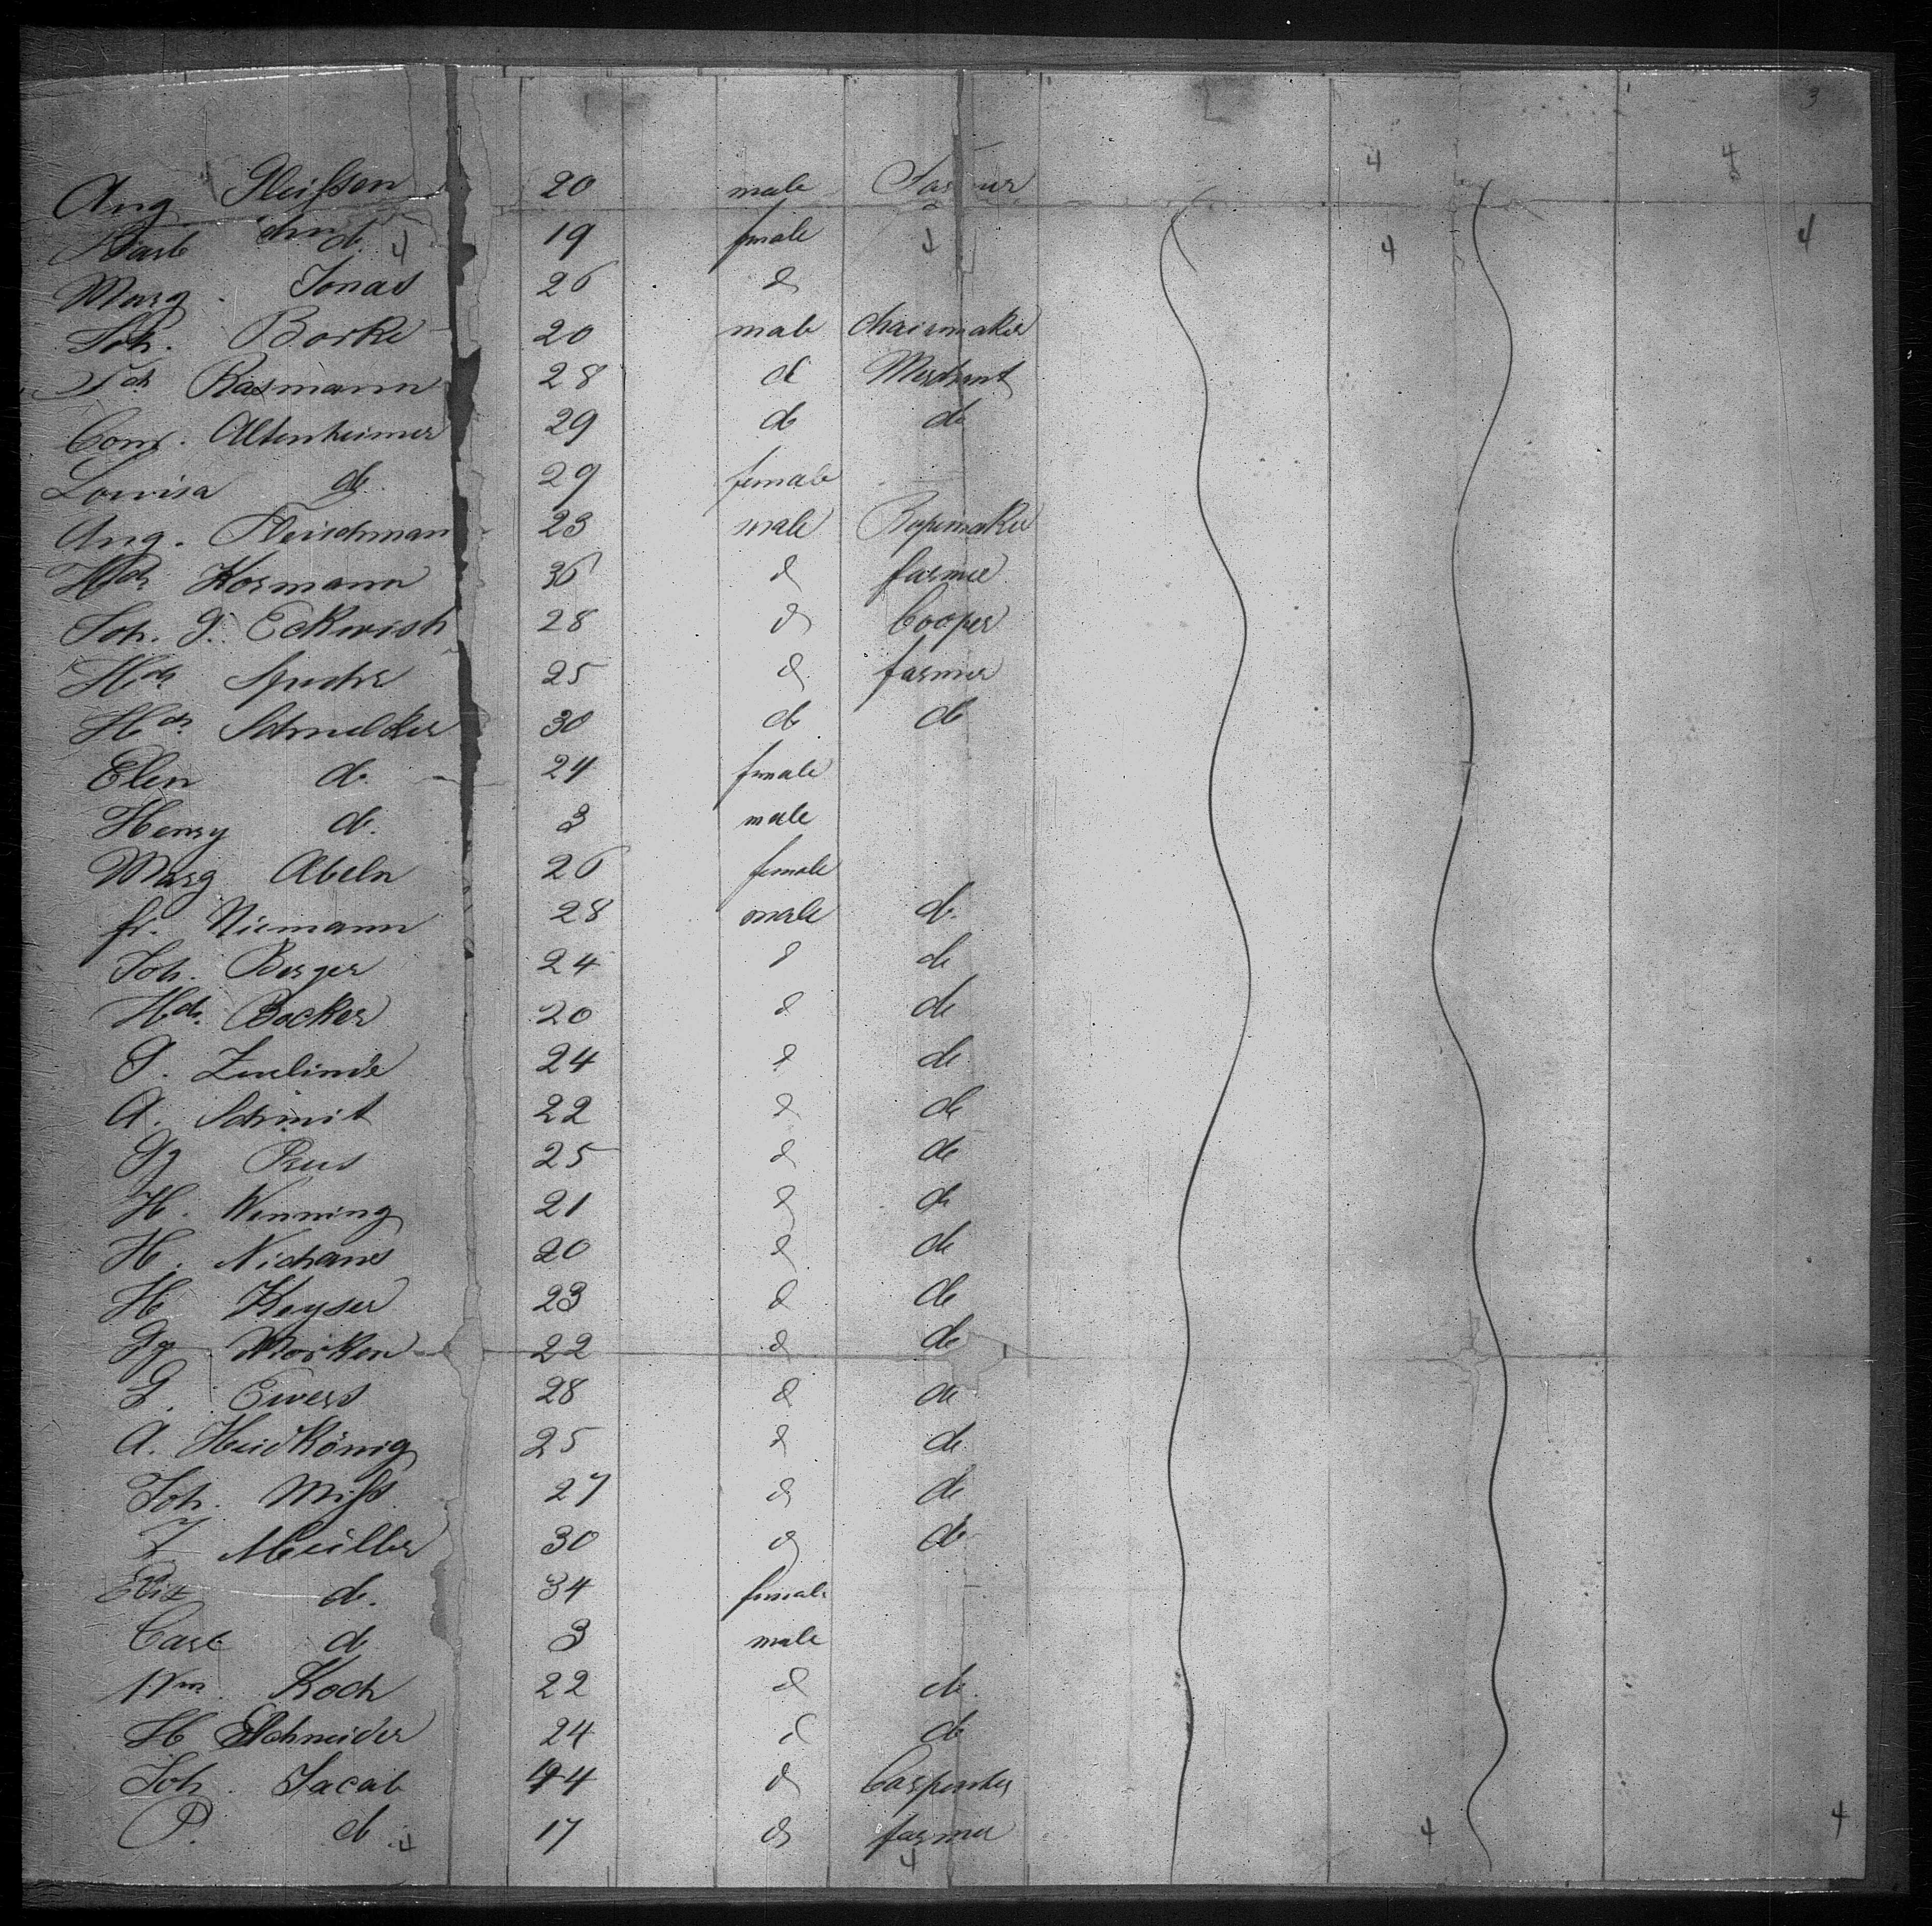 3
4 4
Aug Gleissen 20 male Farmer
Barb do 4 19 female 4 4 4
Marg. Jonas 26 d
Joh. Borke 20 male Chairmaker
Rasmann 28 d Merchant
Conr. Altenheimer 29 do do
Louisa do 29 female
Aug. Fleischman 23 male Ropemaker
Hch Hormann 36 d farmer
Joh. G. Eckwish 28 d Cooper
Hch Spuchr 25 d farmer
Hch Schmelker 30 do do
Elen do. 24 female
Henry do. 3 male
Marg Abeln 26 female
fr. Niemann 28 male do.
Joh. Berger 24 d do
Hch. Backer 20 d do
G. Zurlinde 24 d do
A. Schmit 22 d do
Gg Reus 25 d do
H. Wenning 21 d do
H. Niehaus 20 d do
H Keyser 23 d do
Gg Morken 22 d do
G. Ewers 28 d do
A. Heidkönig 25 d do
Joh. Miss 27 d do
Müller 30 d do
Eliz do. 34 female
Carl do 3 male
Wm. Koch 22 d do.
H Schneider 24 d do
Joh. Jacob 44 d Carpenter
P. do 4 17 d farmer 4 4
4